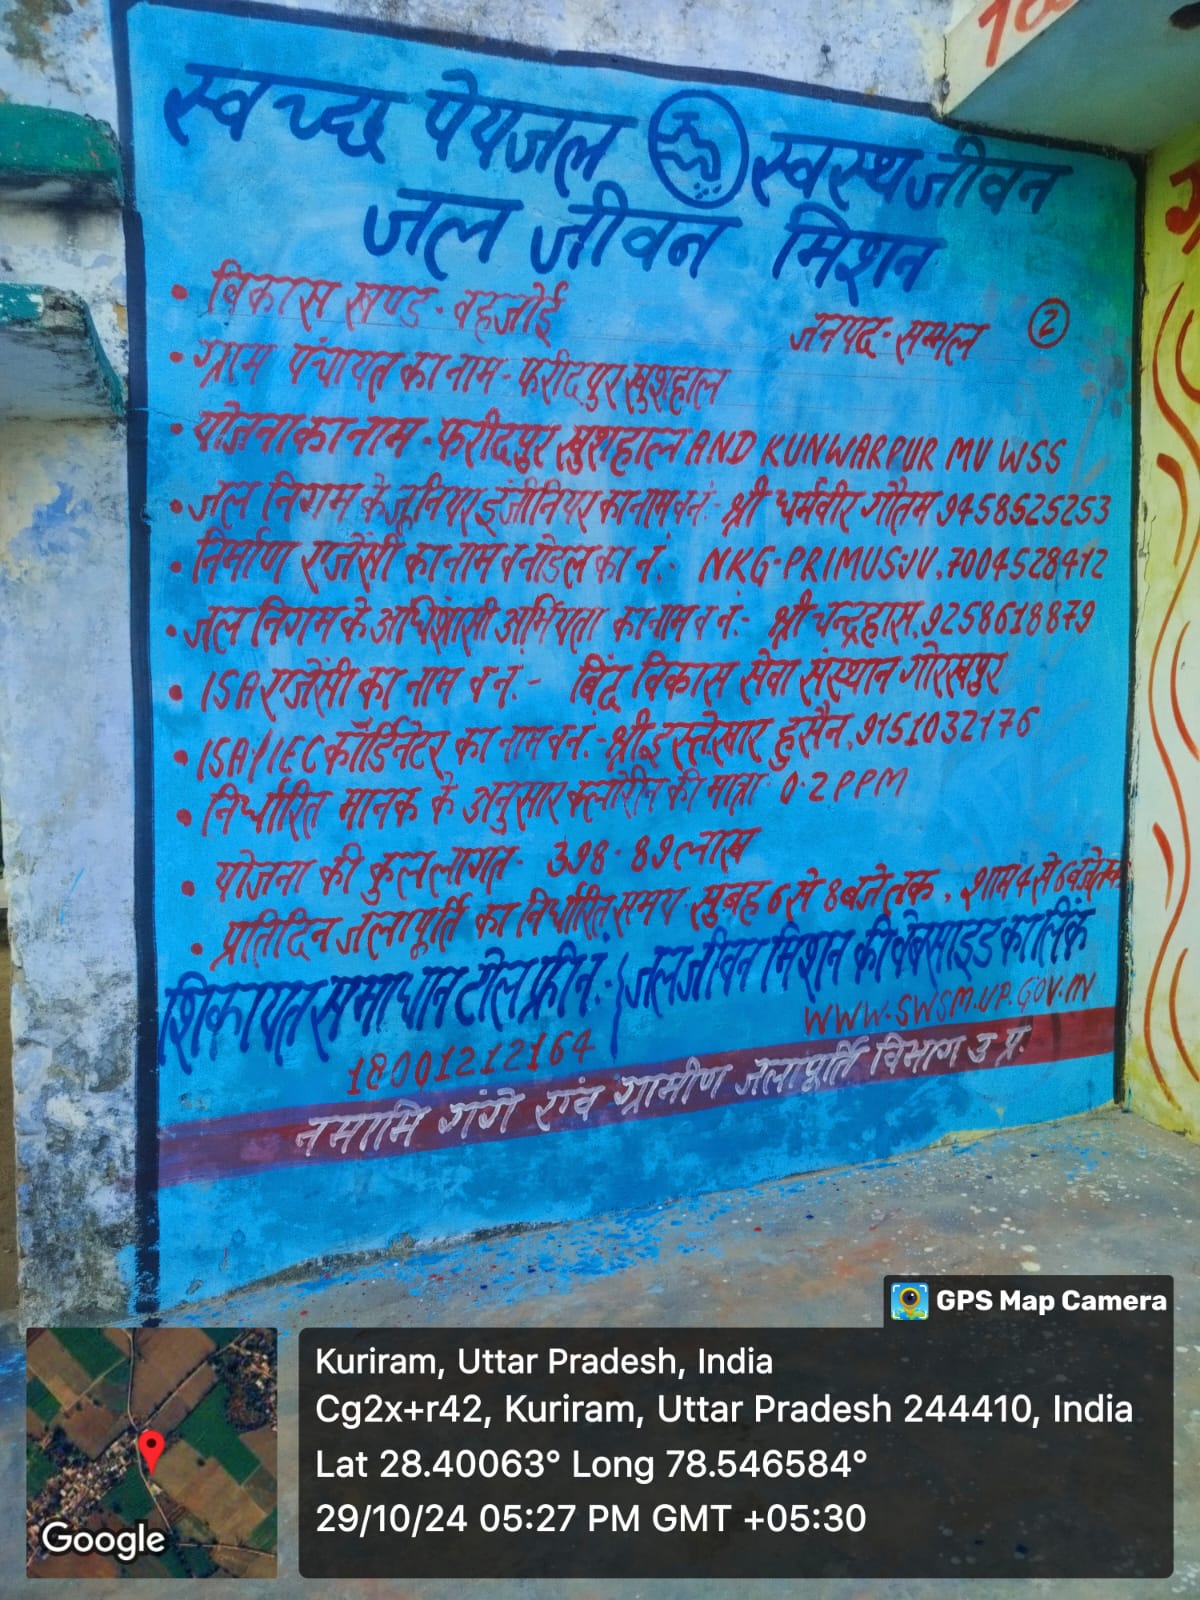 स्वच्छ पेयजल स्वस्थ जीवन
जल जीवन मिशन
• विकास खण्ड - वहजोई जनपद - सम्भल ②
• ग्राम पंचायत का नाम - फरीदपुर खुशहाल
• योजना का नाम - फरीदपुर खुशहाल AND KUNWARPUR MV WSS
• जल निगम के जूनियर इंजीनियर का नाम व नं.- श्री धर्मवीर गौतम 9458525253
• निर्माण एजेंसी का नाम व नोडल का नं.- NKG-PRIMUS:JV,7004528412
• जल निगम के अधिशासी अभियंता का नाम व नं.- श्री चन्द्रहास, 9258618879
• ISA एजेंसी का नाम व नं.- बिंदु विकास सेवा संस्थान गोरखपुर
• ISA/IEC कॉर्डिनेटर का नाम व नं.- श्री इस्तेखार हुसैन, 9151032176
• निर्धारित मानक के अनुसार क्लोरीन की मात्रा 0.2 PPM
• योजना की कुल लागत - 398.89 लाख
• प्रतिदिन जलापूर्ति का निर्धारित समय सुबह 6 से 8 बजे तक, शाम 4 से 6 बजे तक
शिकायत समाधान टोल फ्री नं.- जल जीवन मिशन की वेबसाइड का लिंक
18001212164 WWW.SWSM.UP.GOV.IN
नमामि गंगे एवं ग्रामीण जलापूर्ति विभाग उ प्र.
GPS Map Camera
Kuriram, Uttar Pradesh, India
Cg2x+r42, Kuriram, Uttar Pradesh 244410, India
Lat 28.40063° Long 78.546584°
29/10/24 05:27 PM GMT +05:30
Google